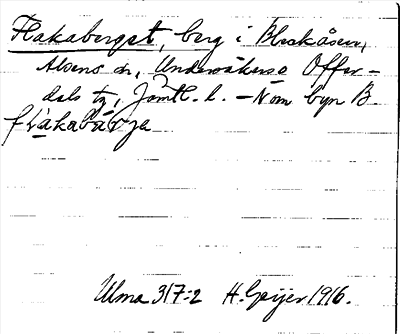 Flakaberget, berg i Bleckåsen,
Alsens sn, Undersåkers o Offer-
dals tg, Jämtl. l. – N om byn B.
flakabärje
Ulma 317:2 H. Geijer 1916.